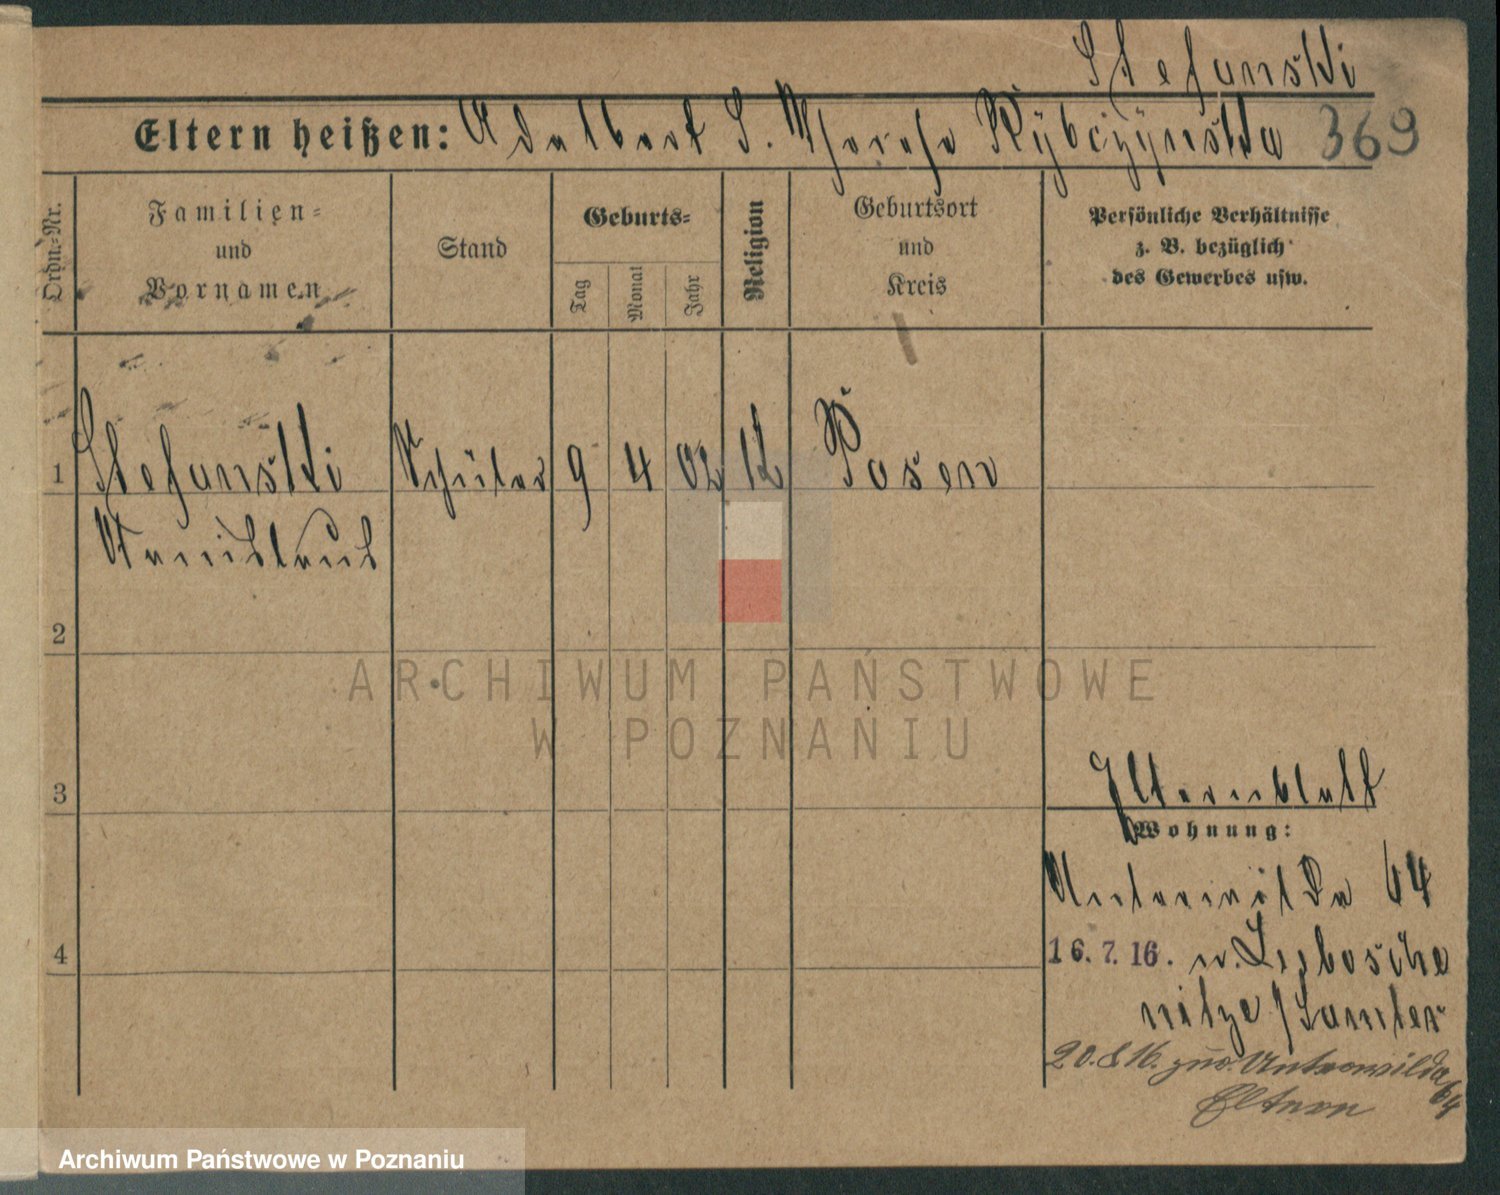 Stefanski
Eltern heißen: Adalbert S. Therese Rybczynska 369
Ordn.-Nr.
Familien-
und
Vornamen
Stand
Geburts-
Tag
Monat
Jahr
Religion
Geburtsort
und
Kreis
Persönliche Verhältnisse
z. B. bezüglich
des Gewerbes usw.
1 Stefanski Schüler 9 4 02 k Posen
Stanislaus
2
ARCHIWUM PAŃSTWOWE
W POZNANIU
3
Elternblatt
Wohnung:
Unterwilda 64
4
16.7.16. n.
nitze / Samter
20.8.16. zur. Unterwilda 64
Eltern
Archiwum Państwowe w Poznaniu